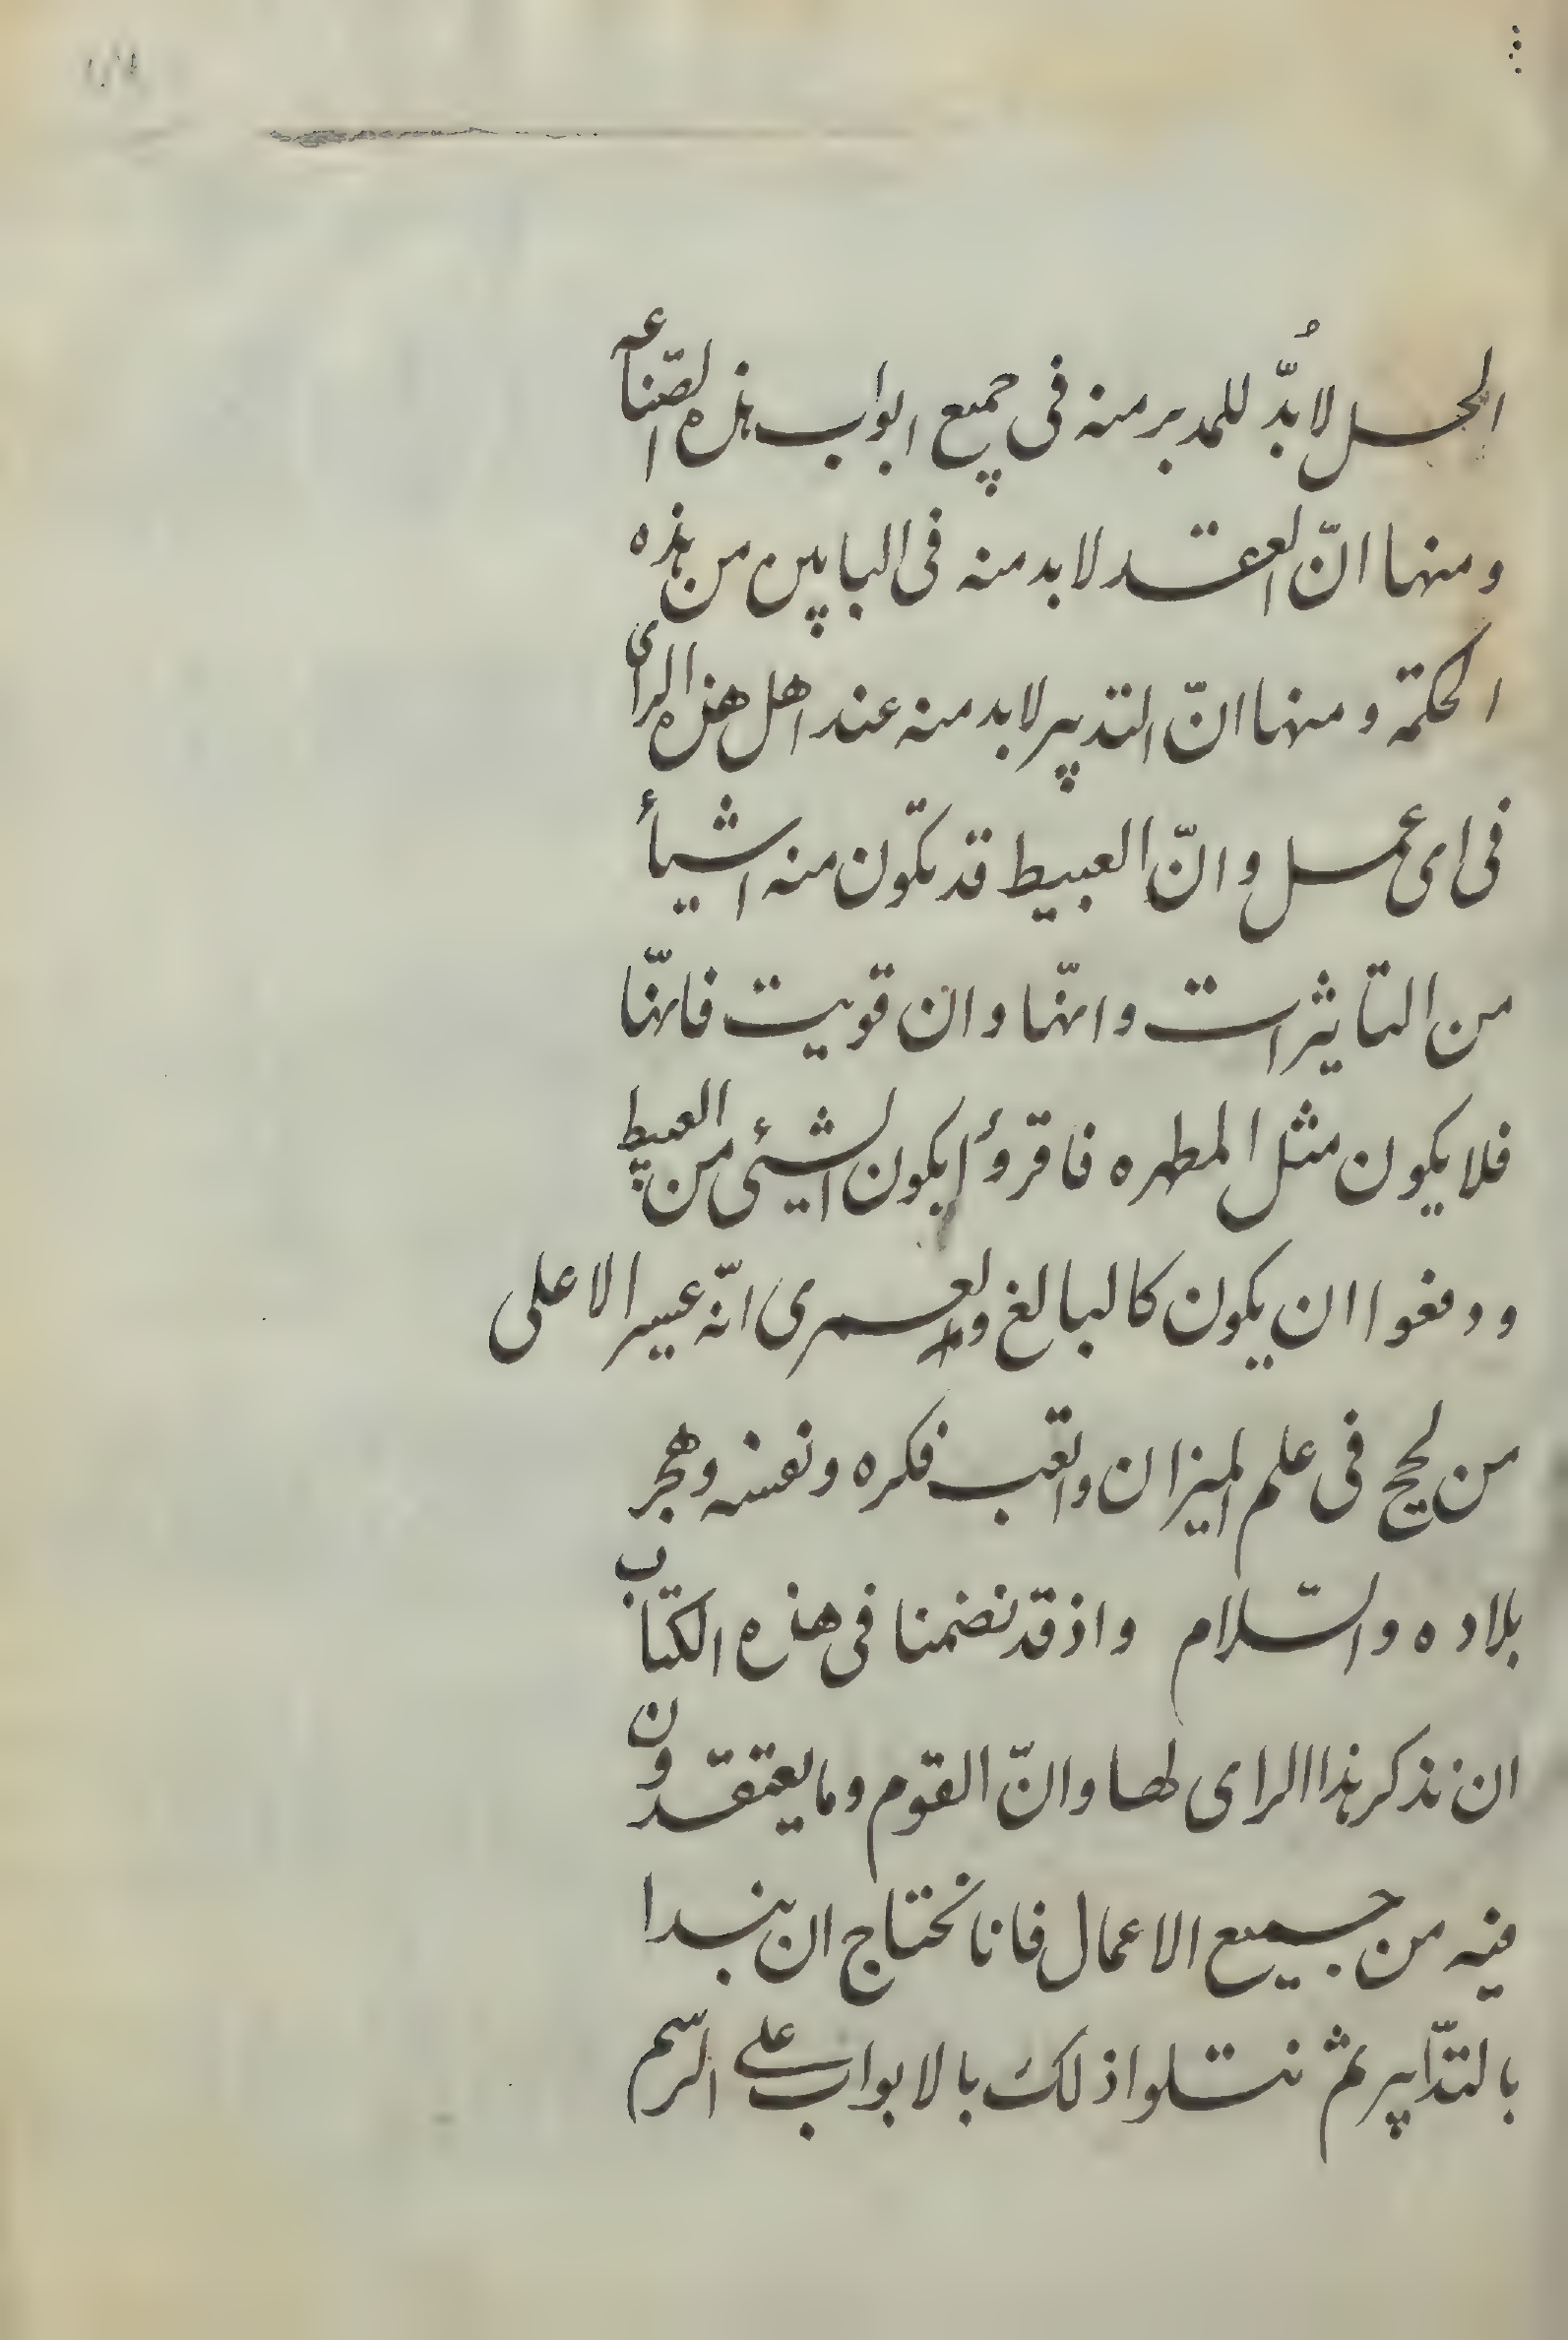 الحل لا بُدّ للمدبر منه فى جميع ابواب هذه الصّناعه
ومنها انّ العقد لا بد منه فى البابين من هذه
الحكمة ومنها انّ التدبير لا بد منه عند اهل هذه الراى
فى اى عمل وانّ العبيط قد يكّون منه اشياأ
من التاثيرات وانهّا وان قويت فانهّا
فلا يكون مثل المطهره فاقروأ ايكون الشيئى من العبيط
ودفعوا ان يكون كالبالغ ولعمرى انّه عسير الا على
من لحج فى علم الميزان واتعب فكره ونفسه وهجر
بلاده والسّلام واذ قد نضمنا فى هذه الكتاب
ان نذكر هذا الراى لها وانّ القوم وما يعتقدون
فيه من جميع الاعمال فانا نحتاج ان نبدا
بالتدّابير ثم نتلوا ذلك بالابواب على الرّسم